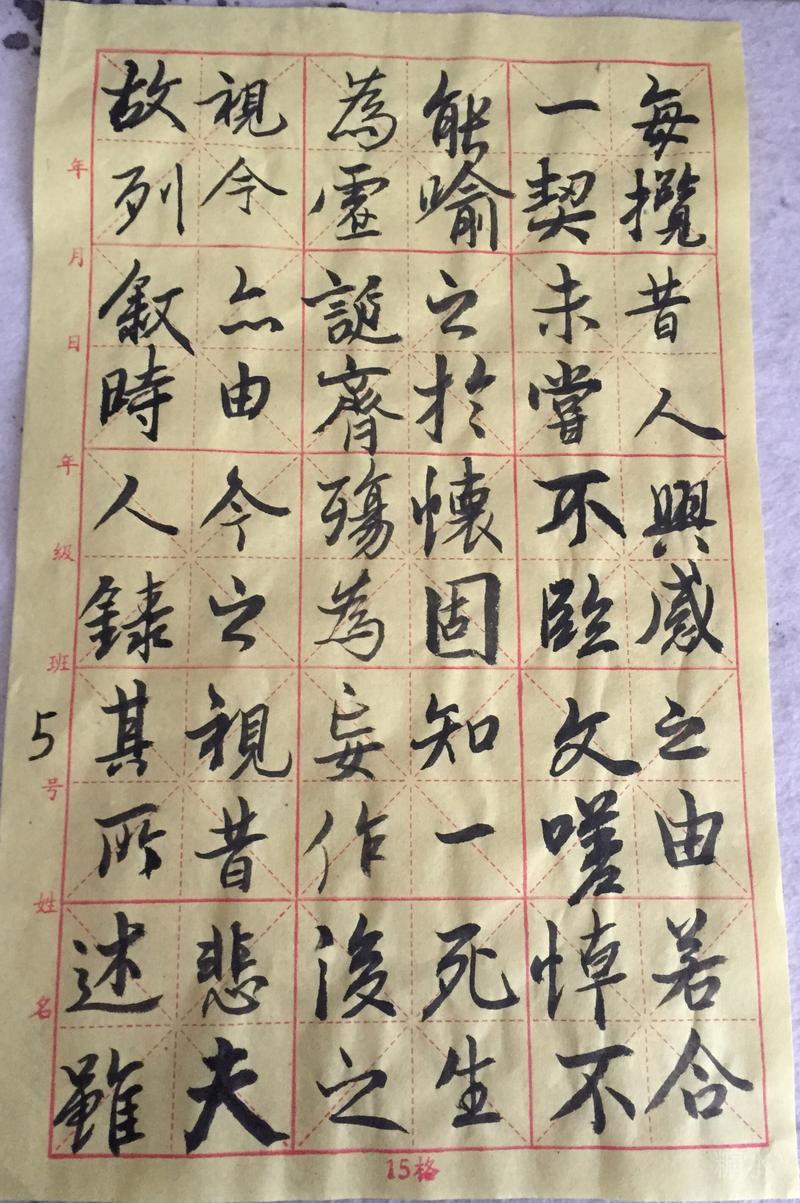 每攬昔人興感之由若合
一契未嘗不臨文嗟悼不
能喻之於懷固知一死生
為虛誕齊殤為妄作後之
視今亦由今之視昔悲夫
故列敘時人錄其所述雖
年月日年级班5号姓名
15格